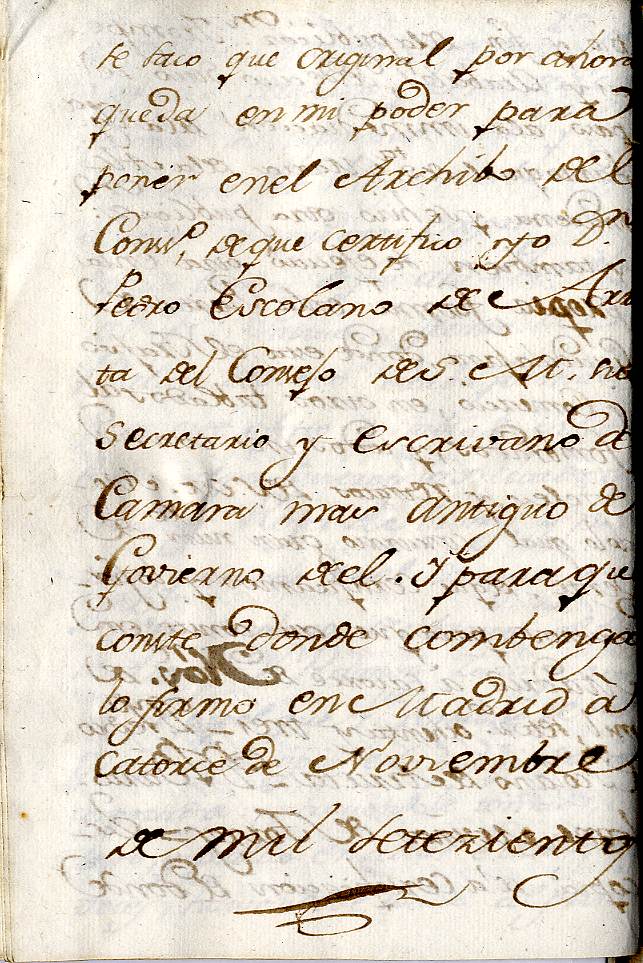 te taco que original por ahora
queda en mi poder para
poner enel Archibo del
Consº, de que certifico yo Dn
Pedro Escolano de Arr
ta del Consejo de S. M. su
Secretario y Escrivano de
Camara mas antiguo de
Govierno del. Y para que
conste donde combenga
lo firmo en Madrid á
Catorce de Noviembre
de mil setezientos